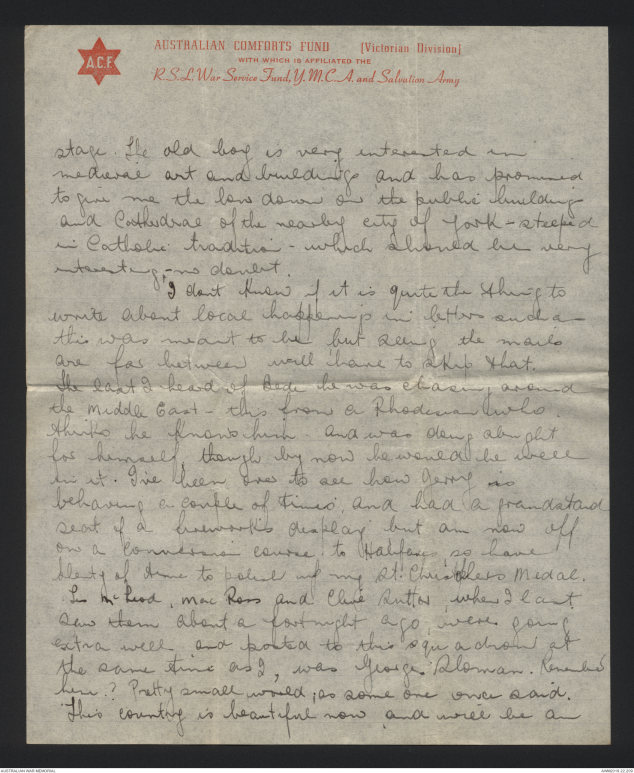 A.C.F.
AUSTRALIAN COMFORTS FUND (Victorian Division)
WITH WHICH IS AFFILIATED THE
R.S.L. War Service Fund, Y.M.C.A. and Salvation Army
stage. The old boy is very interested in
medieval art and buildings and has promised
to give me the low down on the public buildings
and Cathedral of the nearby city of York - steeped
in Catholic tradition - which should be very
interesting, - no doubt.
I don't know if it is quite the thing to
write about local happenings in letters such as
this was meant to be but seeing the mails
are far between will have to skip that.
The last I heard of Bede he was chasing around
the Middle East - this from a Rhodesian who
thinks he knows him - and was doing alright
for himself, though by now he would be well
in it. I've been over to see how Jerry is
behaving a couple of times, and had a grandstand
seat of a fireworks display but am now off
on a Conversion course to Halifaxes so have
plenty of time to polish up my St. Christophers Medal.
McLeod, Mac Ross and Clive Suttor, when I last
saw them about a fortnight ago, were going
extra well and posted to this squadron at
the same time as I, was George Sloman. Remember
him? Pretty small world, as some one once said.
This country is beautiful now and will be an
AUSTRALIAN WAR MEMORIAL